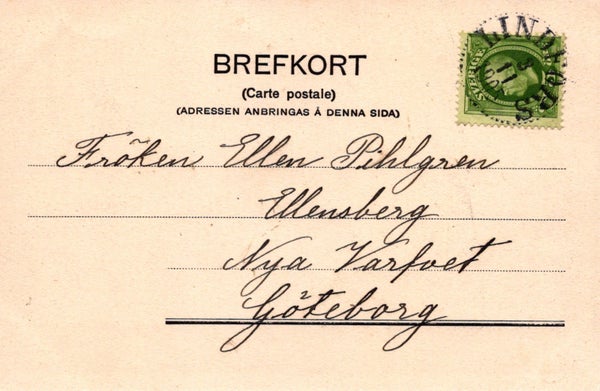 BREFKORT
(Carte postale)
(ADRESSEN ANBRINGAS Å DENNA SIDA)
LINDFORS
SVERIGE
Fröken Ellen Pihlgren
Ellensberg
Nya Varfvet
Göteborg